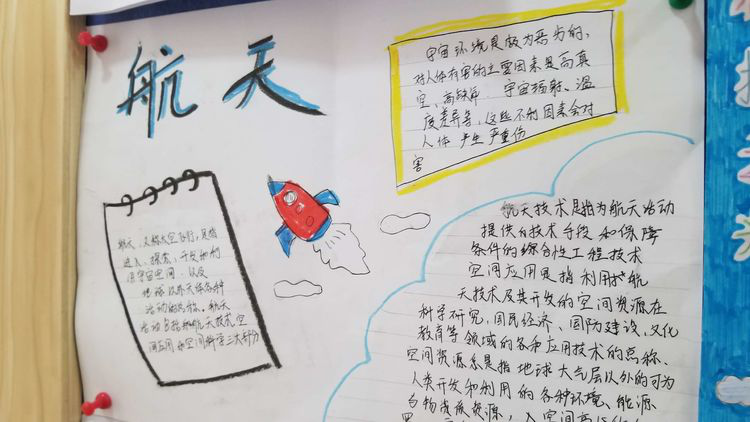 航天
宇宙环境是极为恶劣的,
对人体有害的主要因素是高真
空、高缺氧 宇宙辐射、温
度差异等,这些不利因素会对
人体产生严重伤
害
航天,又称太空飞行,是指
进入、探索、开发和利
用宇宙空间,以及
地球以外天体各种
活动的总称。航天
活动包括航天技术,空
间应用和空间科学三大部分
航天技术是指为航天活动
提供的技术手段和保障
条件的综合性工程技术
空间应用是指利用航
天技术及其开发的空间资源在
科学研究、国民经济、国防建设、文化
教育等领域的各种应用技术的总称、
空间资源系是指地球大气层以外的可为
人类开发和利用的各种环境、能源
与物质资源,